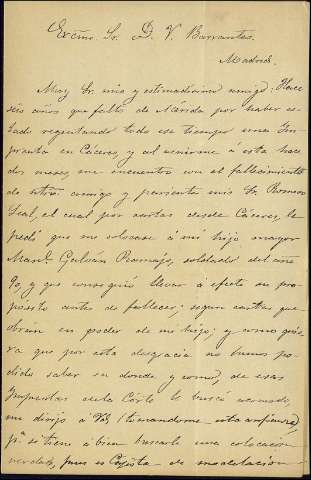 Excmo Sr. D. V. Barrantes.
Madrid.
Muy Sr. mio y estimadisimo amigo: Hace
seis años que falto de Mérida por haber es-
tado regentando todo ese tiempo una Im-
prenta en Cáceres, y al venirme á esta hace
dos meses, me encuentro con el fallecimiento
de ntro. amigo y pariente mio Sr. Romero
Leal, el cual por cartas desde Cáceres, le
pedí que me colocase á mi hijo mayor
Manl. Galván Romajo, soldado del año
90, y que consiguió llevar á efecto su pro-
pósito antes de fallecer; segun cartas que
obran en poder de mi hijo; y como quie-
ra que por esta desgracia no hemos po-
dido saber en donde y como, de esas
Imprentas de la Córte le buscó acomodo,
me dirijo á Vd, (tomandome esta confianza)
pa. si tiene á bien buscarle una colocacion
verdad, pues es Cajista de modelacion